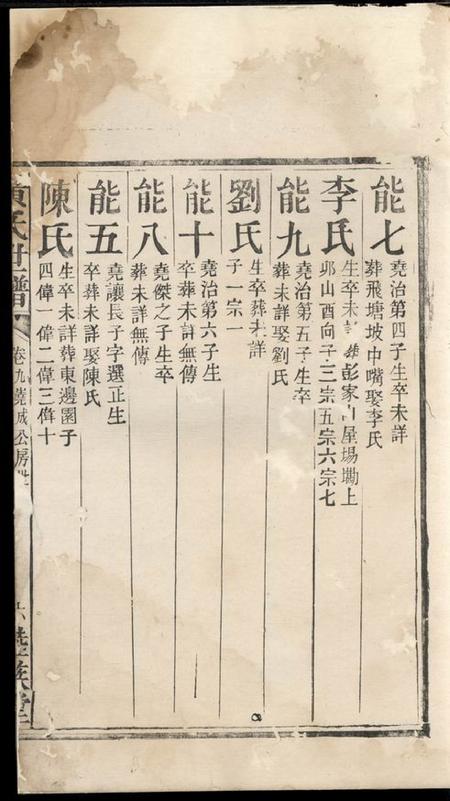 能七
堯治第四子生卒未詳
葬飛塘坡中嘴娶李氏
李氏
生卒未詳葬彭家山屋場墈上
卯山酉向子三宗五宗六宗七
能九
堯治第五子生卒
葬未詳娶劉氏
劉氏
生卒葬未詳
子一宗一
能十
堯治第六子生
卒葬未詳無傳
能八
堯傑之子生卒
葬未詳無傳
能五
堯讓長子字選正生
卒葬未詳娶陳氏
陳氏
生卒未詳葬東邊園子
四偉一偉二偉三偉十
黃氏世譜
卷九堯成公房世
六
堂